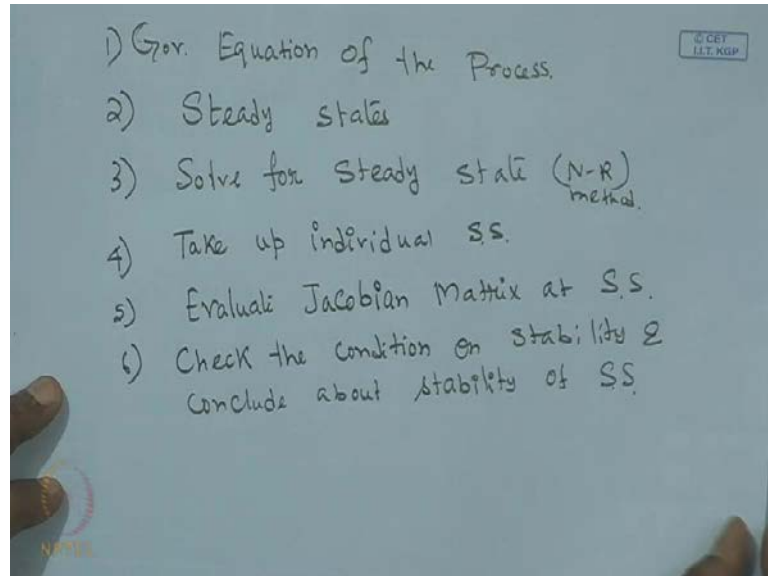 1) Gov. Equation of the Process.
© CET
I.I.T. KGP
2) Steady states
3) Solve for Steady state (N-R)
method.
4) Take up individual S.S.
5) Evaluate Jacobian Matrix at S.S.
6) Check the condition on stability &
conclude about stability of S.S.
NPTEL